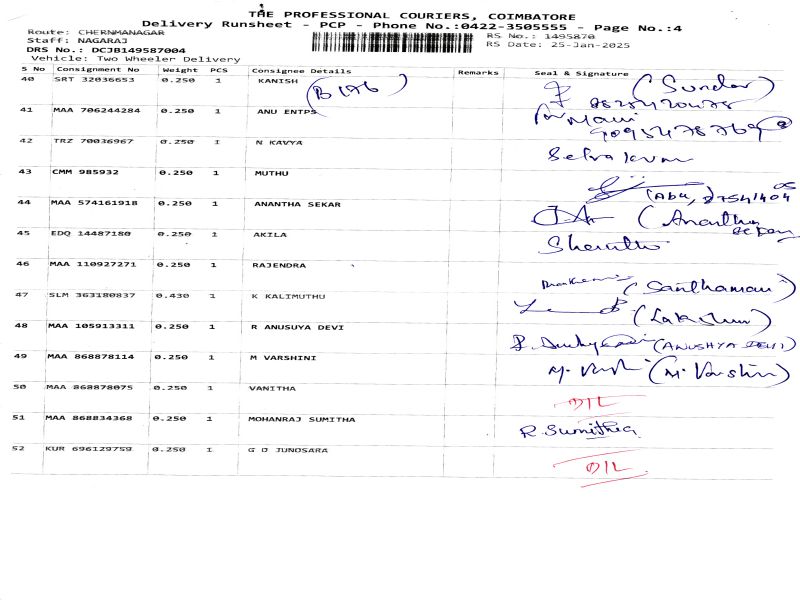 THE PROFESSIONAL COURIERS, COIMBATORE
Delivery Runsheet - PCP - Phone No.:0422-3505555 - Page No.:4
Route: CHERNMANAGAR RS No.: 1495870
Staff: NAGARAJ RS Date: 25-Jan-2025
DRS No.: DCJB149587004
Vehicle: Two Wheeler Delivery
S No Consignment No Weight PCS Consignee Details Remarks Seal & Signature
40 SRT 32036653 0.250 1 KANISH (B 196) (Sundar)
41 MAA 706244284 0.250 1 ANU ENTPS Mani
42 TRZ 70036967 0.250 1 N KAVYA Selvakumar
43 CMM 985932 0.250 1 MUTHU (Abu,
44 MAA 574161918 0.250 1 ANANTHA SEKAR (Anantha Sekar
45 EDQ 14487180 0.250 1 AKILA
46 MAA 110927271 0.250 1 RAJENDRA (Santhamani)
47 SLM 363180837 0.430 1 K KALIMUTHU
48 MAA 105913311 0.250 1 R ANUSUYA DEVI (ANUSHYA DEVI)
49 MAA 868878114 0.250 1 M VARSHINI (M. Varshini)
50 MAA 868878075 0.250 1 VANITHA DIL
51 MAA 868834368 0.250 1 MOHANRAJ SUMITHA R. Sumithra
52 KUR 696129759 0.250 1 G D JUNOSARA DIL